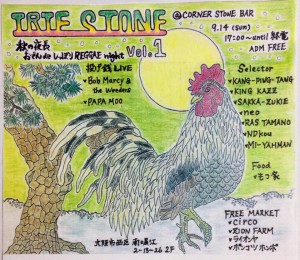 IRIE STONE
Vol.1
@CORNER STONE BAR
9.14 (sun)
17:00〜until 翌電
ADM FREE
秋の夜長
おそんDEしっぽりREGGAE night
投げ銭LIVE
・Bob Marcy & the Weeders
・PAPA MOO
Selector
・KANG-PING-TANG
・KING KAZE
・SAKKA-ZUKIE
・neo
・RAS TAMANO
・NDkou
・MI-YAHMAN
Food
・モコ家
FREE MARKET
・circo
・ZION FARM
・ライオンヤ
・ポンコツホンポ
大阪市西区南堀江
2-13-26 2F